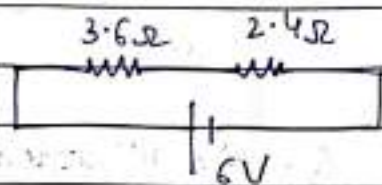 3.6Ω 2.4Ω
6V